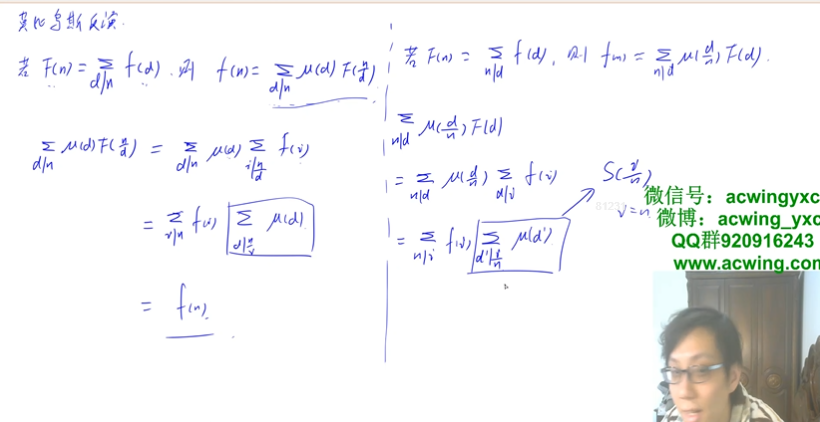 莫比乌斯反演
若 F(n) = ∑_{d|n} f(d), 则 f(n) = ∑_{d|n} μ(d) F(n/d)
∑_{d|n} μ(d) F(n/d) = ∑_{d|n} μ(d) ∑_{i|n/d} f(i)
= ∑_{i|n} f(i) ∑_{d|n/i} μ(d)
= f(n)
若 F(n) = ∑_{n|d} f(d), 则 f(n) = ∑_{n|d} μ(d/n) F(d).
∑_{n|d} μ(d/n) F(d)
= ∑_{n|d} μ(d/n) ∑_{d|i} f(i)
= ∑_{n|i} f(i) ∑_{d'|i/n} μ(d')
S(i/n)
i=n
微信号：acwingyxc
微博：acwing_yxc
QQ群920916243
www.acwing.com